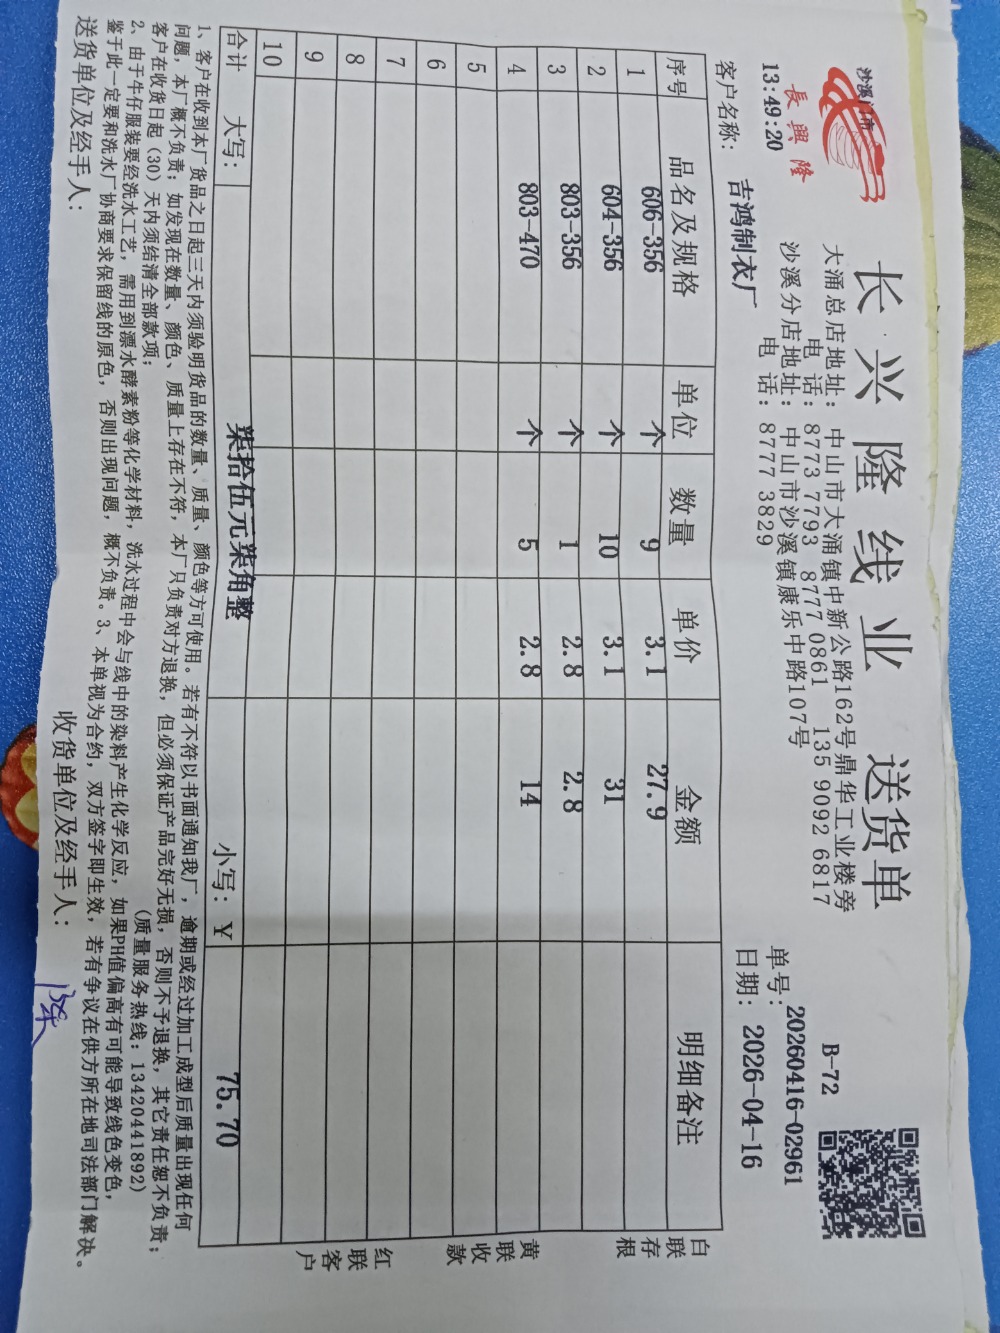 沙溪门市
長興隆
长兴隆线业 送货单
大涌总店地址：中山市大涌镇中新公路162号鼎华工业楼旁
电 话：8773 7793 8777 0861 135 9092 6817
沙溪分店地址：中山市沙溪镇康乐中路107号
电 话：8777 3829
B-72
13:49:20
单号：20260416-02961
客户名称： 吉鸿制衣厂
日期：2026-04-16
序号 品名及规格 单位 数量 单价 金额 明细备注
1 606-356 个 9 3.1 27.9
2 604-356 个 10 3.1 31
3 803-356 个 1 2.8 2.8
4 803-470 个 5 2.8 14
5
6
7
8
9
10
合计 大写： 柒拾伍元柒角整 小写：¥ 75.70
白联存根
黄联收款
红联客户
1、客户在收到本厂货品之日起三天内须验明货品的数量、质量、颜色等方可使用。若有不符以书面通知我厂，逾期或经过加工成型后质量出现任何
问题，本厂概不负责；如发现在数量、颜色、质量上存在不符，本厂只负责对方退换，但必须保证产品完好无损，否则不予退换，其它责任恕不负责；
客户在收货日起（30）天内须结清全部款项； （质量服务热线：13420441892）
2、由于牛仔服装要经洗水工艺，需用到漂水酵素粉等化学材料，洗水过程中会与线中的染料产生化学反应，如果PH值偏高有可能导致线色变色，
鉴于此一定要和洗水厂协商要求保留线的原色，否则出现问题，概不负责。3、本单视为合约，双方签字即生效，若有争议在供方所在地司法部门解决。
送货单位及经手人： 收货单位及经手人：